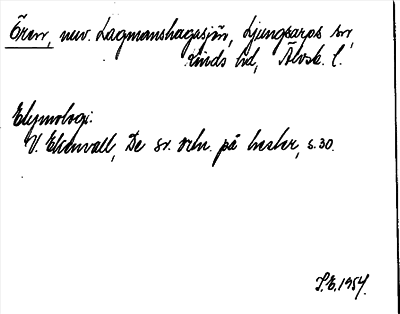 Ören, nuv. Lagmanshagasjön, Ljungsarps sn,
Kinds hd, Älvsb. l.
Etymologi:
V. Ekenvall, De sv. ortn. på hester, s. 30.
I.E. 1954.